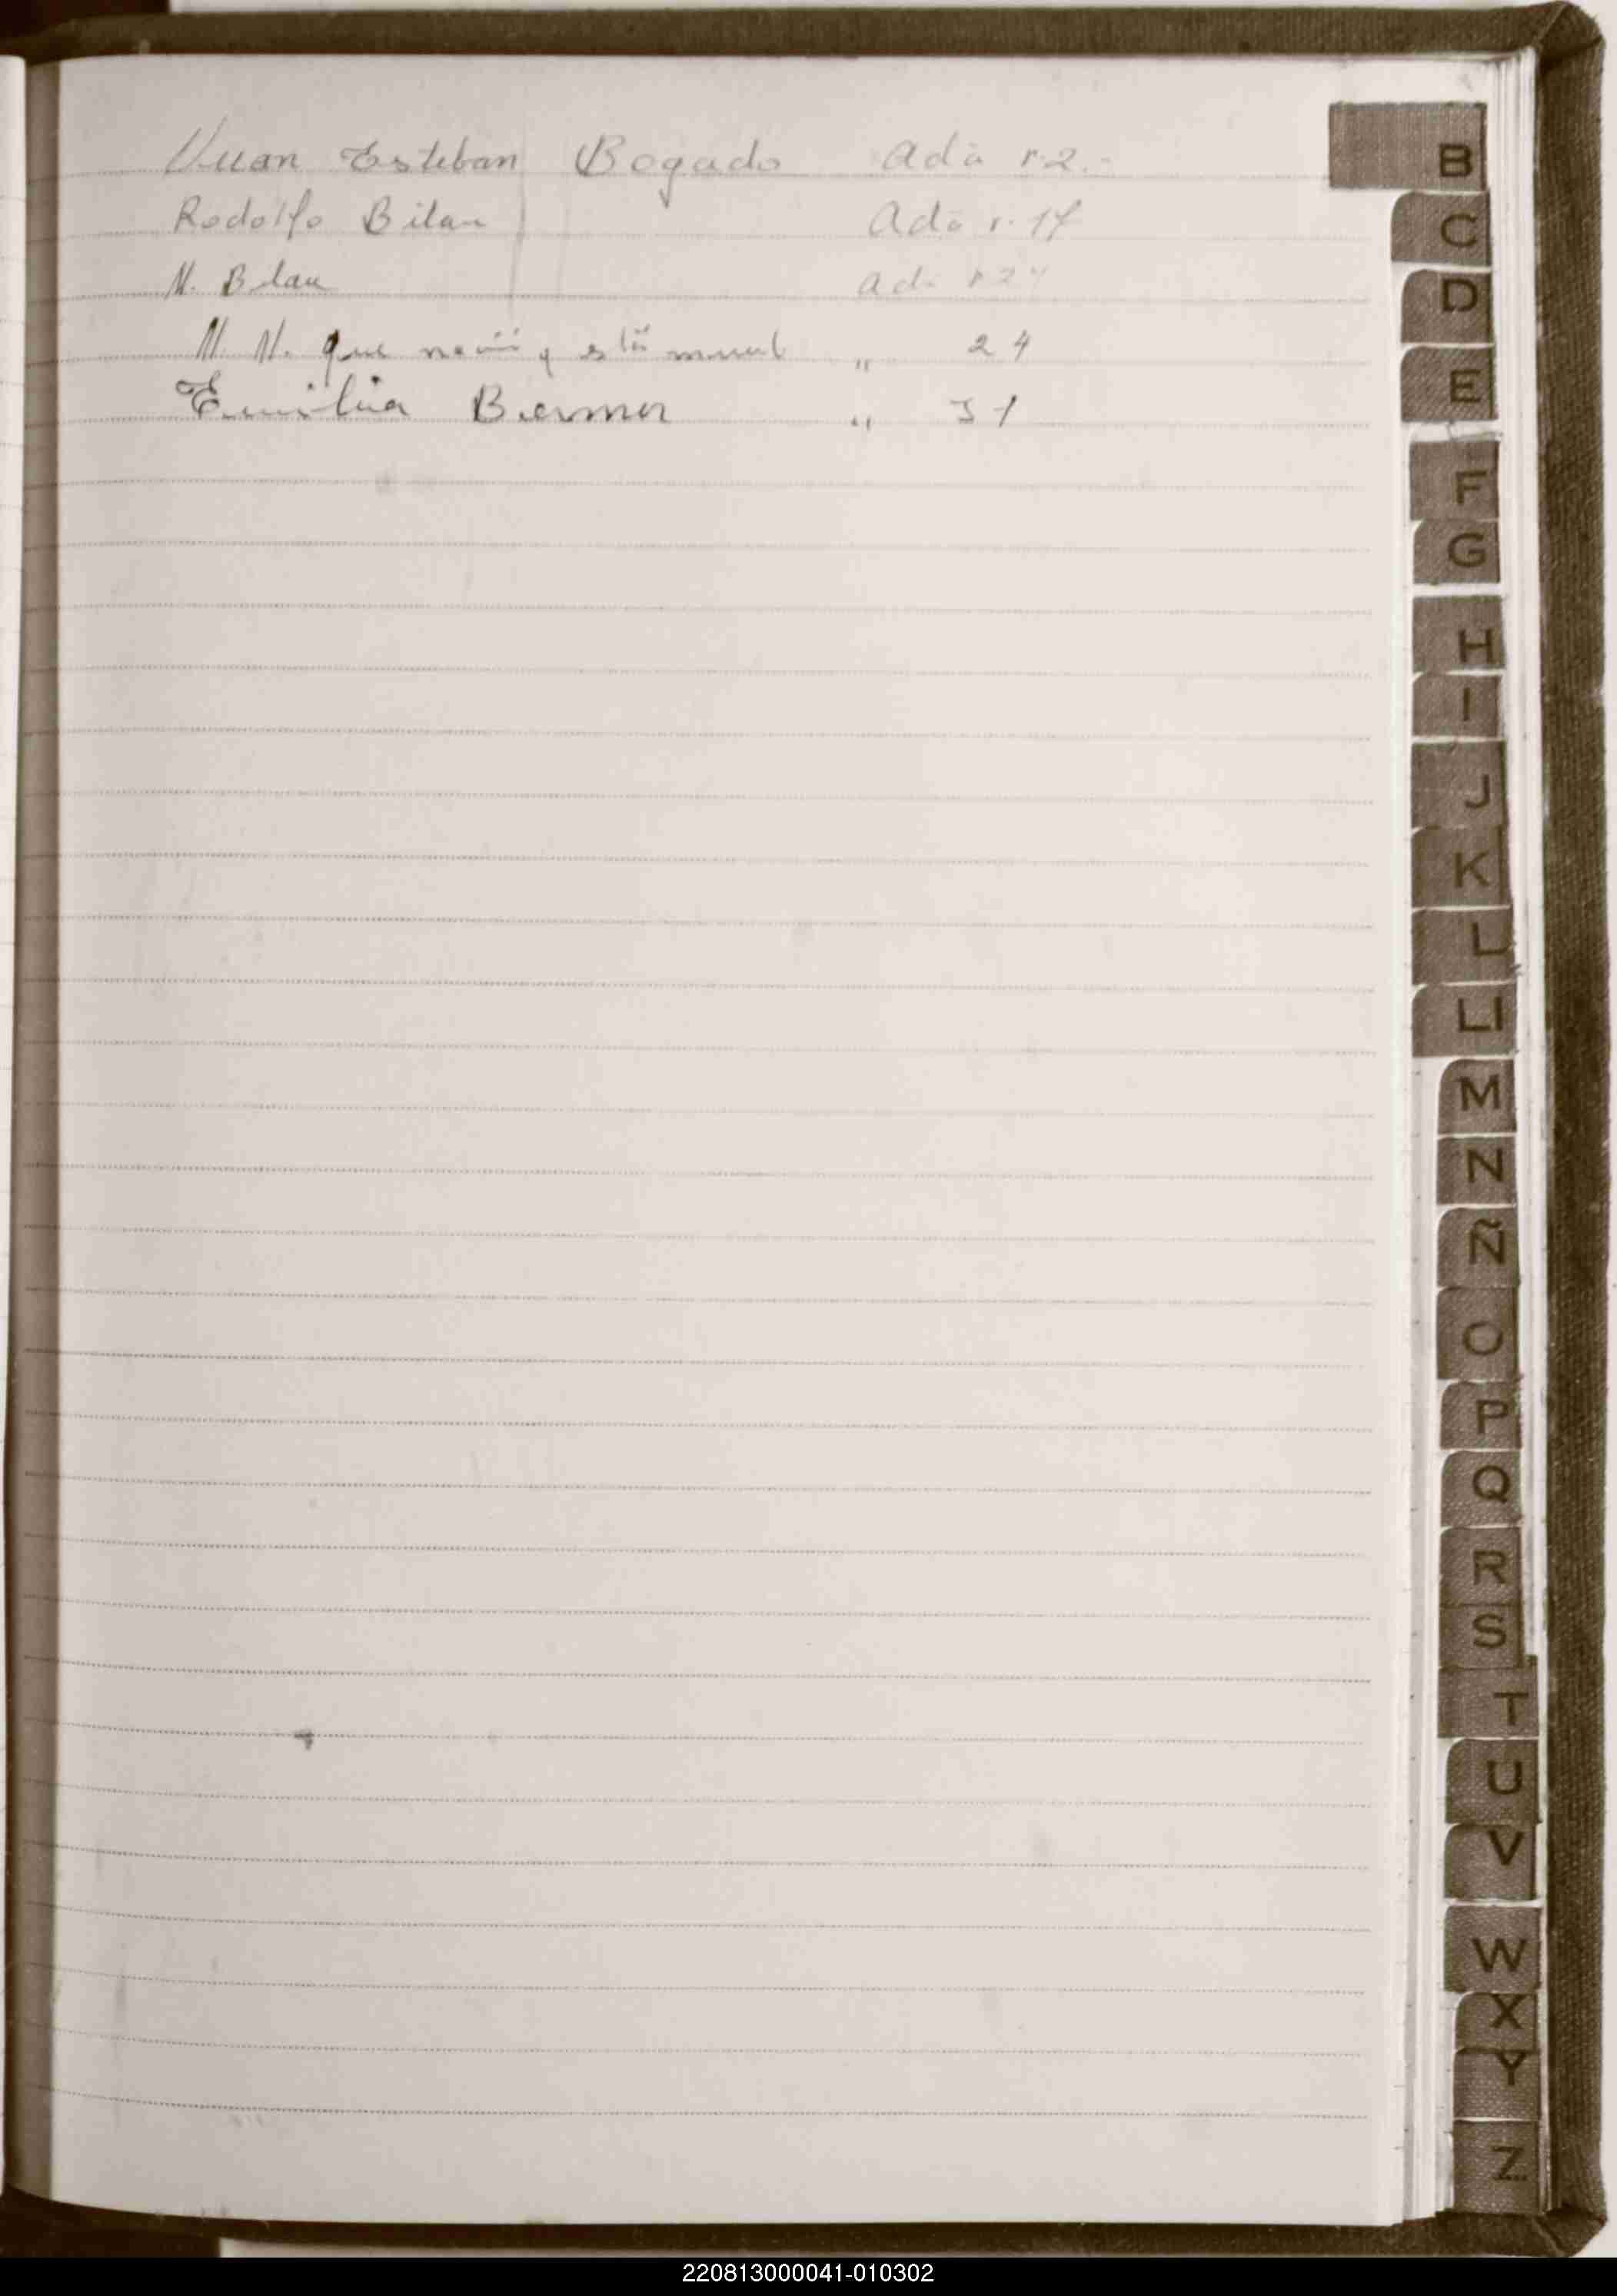 Juan Esteban Bogado Ada r. 2.-
Rodolfo Bilan Ada r. 17
N. Bilan Ada r 24
N. N. que nació y está „ 24
Emilia „ 31
B
C
D
E
F
G
H
I
J
K
L
Ll
M
N
Ñ
O
P
Q
R
S
T
U
V
W
X
Y
Z
220813000041-010302